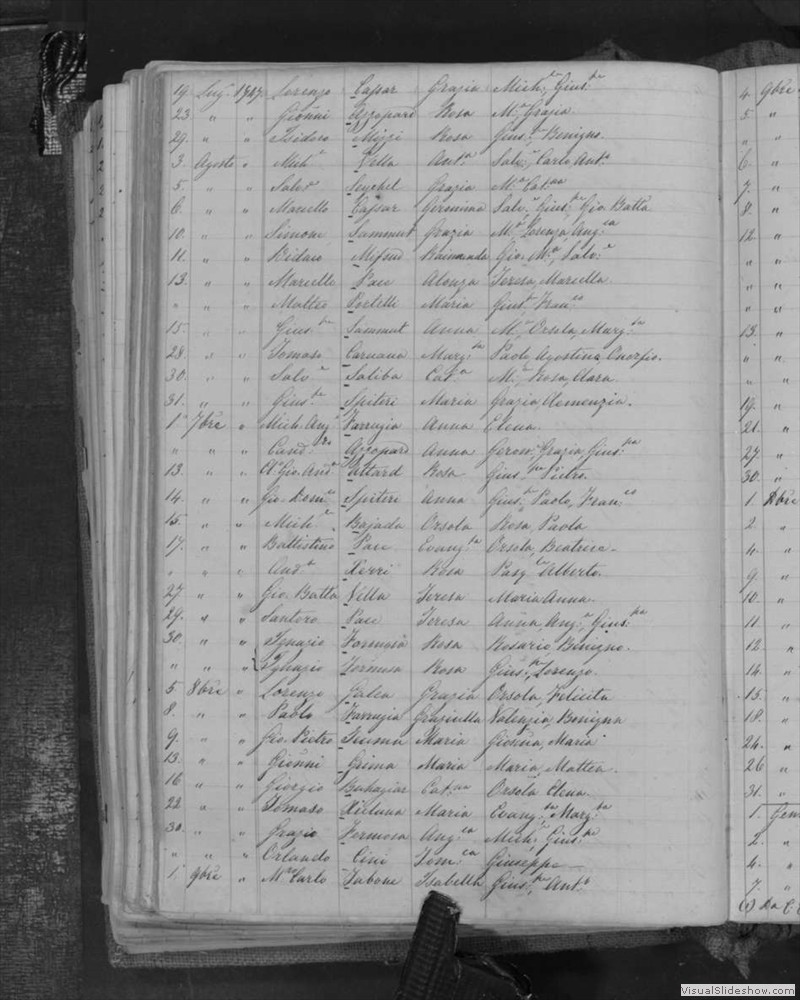 19. Lug. 1747. Lorenzo Cassar Grazia Mich.le Gius.pe
23. " " Gioñni Azzopard Rosa M.a Grazia
29. " " Isidoro Mizzi Rosa Gius.e Benigno.
3. Agosto " Mich.e Vella Ant.a Salv.e Carlo Ant.o
5. " " Salv.e Seychel Grazia M.a Cat.na
6. " " Marcello Cassar Geronima Salv.e Gius.pe Gio Batta
10. " " Simone Sammut Grazia M.a Lorenza Ang.ca
11. " " Mifsud Raimonda Gio. M.a Salv.e
13. " " Marcello Pace Alonza Teresa, Marcella.
" " " Matteo Portelli Maria Gius.e Fran.co
15. " " Gius.pe Sammut Anna M.a Orsola, Marg.ta
28. " " Tomaso Caruana Marg.ta Paolo, Agostino, Onorfio.
30. " " Salv.e Saliba Cat.a M.a Rosa, Clara.
31. " " Gius.pe Spiteri Maria Grazia, Clemenzia.
1° 7bre " Mich. Ang.o Farrugia Anna Elena.
" " " Cand. Azzopard Anna Geron.a Grazia, Gius.pa
13. " " Cl.o Gio. And.a Attard Rosa Gius.pe Pietro.
14. " " Gio. Dom.co Spiteri Anna Gius.e Paolo, Fran.co
15. " " Mich.e Bajada Orsola Rosa, Paola
17. " " Battistino Pace Evang.ta Orsola, Beatrice.
" " " And.a Xerri Rosa Pasq.le Alberto.
27. " " Gio. Batta Vella Teresa Maria Anna.
29. " " Santoro Pace Teresa Anna Ang.a Gius.pa
30. " " Ignazio Formosa Rosa Rosario, Benigno.
" " " Ignazio Formosa Rosa Gius.pe Lorenzo.
5. 8bre " Lorenzo Galea Grazia Orsola, Felicita
8. " " Paolo Farrugia Graziulla Valenzia, Benigna
9. " " Gio. Pietro Giusma Maria Gioseña, Maria
13. " " Gioñni Grima Maria Maria, Mattea.
16 " " Giorgio Buhagiar Cat.na Orsola Elena.
22 " " Tomaso Xicluna Maria Evang.ta Marg.ta
30. " " Grazio Formosa Ang.ca Mich.e Gius.pe
" " " Orlando Cini Dom.ca Giuseppe
1. 9bre " M.co Carlo Tabone Isabella Gius.pe Ant.o
4. 9bre
5 "
" "
6. "
7. "
8. "
12. "
" "
" "
" "
13. "
" "
" "
19. "
21. "
27. "
30. "
1. Xbre
2. "
4. "
9. "
10. "
11. "
12. "
14. "
15. "
18. "
24. "
26 "
31. "
1. Gen
2. "
4. "
7. "
VisualSlideshow.com